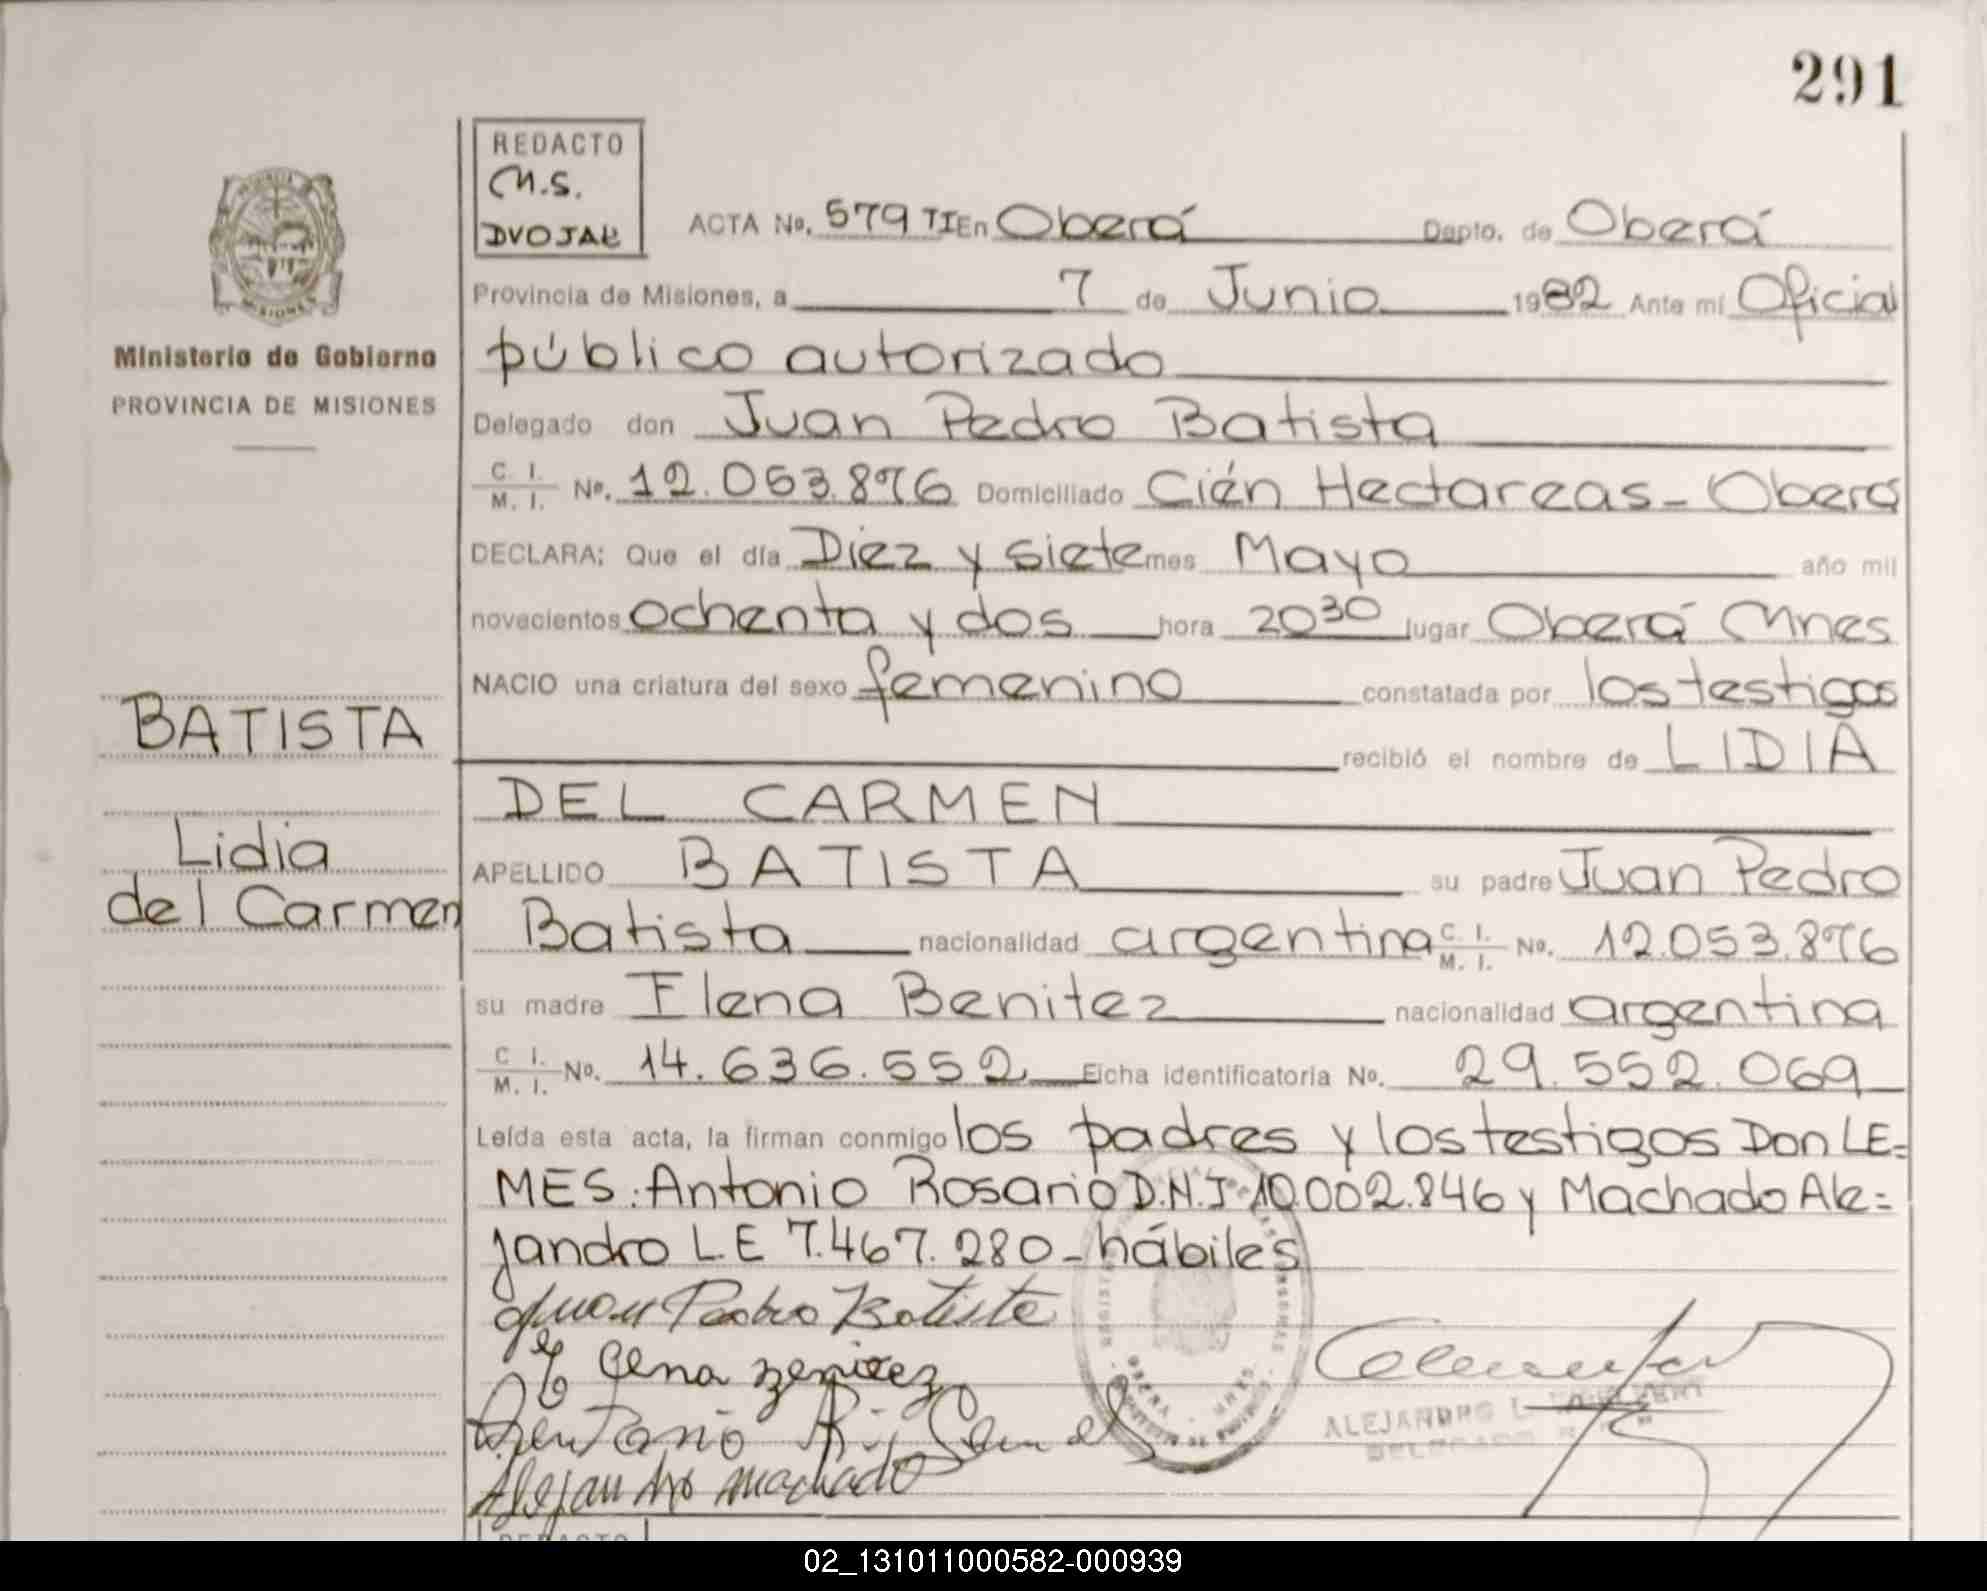 291
REDACTO
M.S.
DVOJAK
ACTA No. 579 TI En Oberá Depto. de Oberá
Provincia de Misiones, a 7 de Junio 1982 Ante mi Oficial
Ministerio de Gobierno
público autorizado
PROVINCIA DE MISIONES
Delegado don Juan Pedro Batista
C. I. / M. I. No. 12.053.876 Domiciliado Cién Hectareas - Oberá
DECLARA: Que el día Diez y siete mes Mayo año mil
novecientos ochenta y dos hora 20 30 lugar Oberá Mnes
NACIO una criatura del sexo femenino constatada por los testigos
BATISTA
recibió el nombre de LIDIA
DEL CARMEN
Lidia
del Carmen
APELLIDO BATISTA su padre Juan Pedro
Batista nacionalidad argentina C. I. / M. I. No. 12.053.876
su madre Elena Benitez nacionalidad argentina
C I. / M. I. No. 14.636.552 Ficha identificatoria No. 29.552.069
Leída esta acta, la firman conmigo los padres y los testigos Don LE=
MES: Antonio Rosario D.N.I 10.002.846 y Machado Ale=
jandro L.E 7.467.280 - hábiles
Juan Pedro Batiste
Elena Benitez
Alejandro machado
ALEJANDRO L.
DELEGADO
REDACTO
02_131011000582-000939